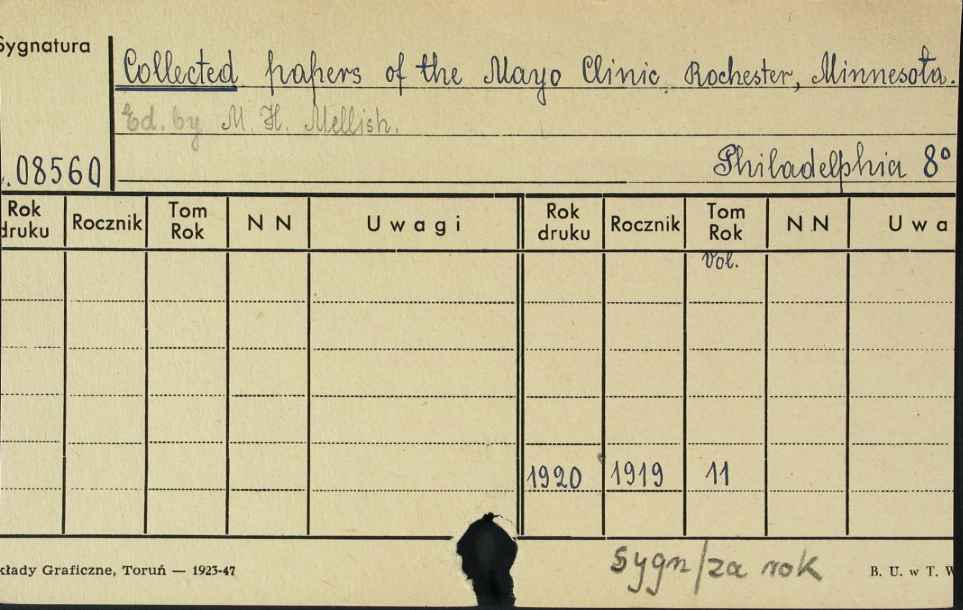 Sygnatura
Collected papers of the Mayo Clinic, Rochester, Minnesota.
Ed. by M. H. Mellish.
.08560
Philadelphia 8°
Rok druku Rocznik Tom Rok N N Uwagi Rok druku Rocznik Tom Rok N N Uwa
Vol.
1920 1919 11
sygn/za rok
kłady Graficzne, Toruń — 1923-47 B. U. w T. W